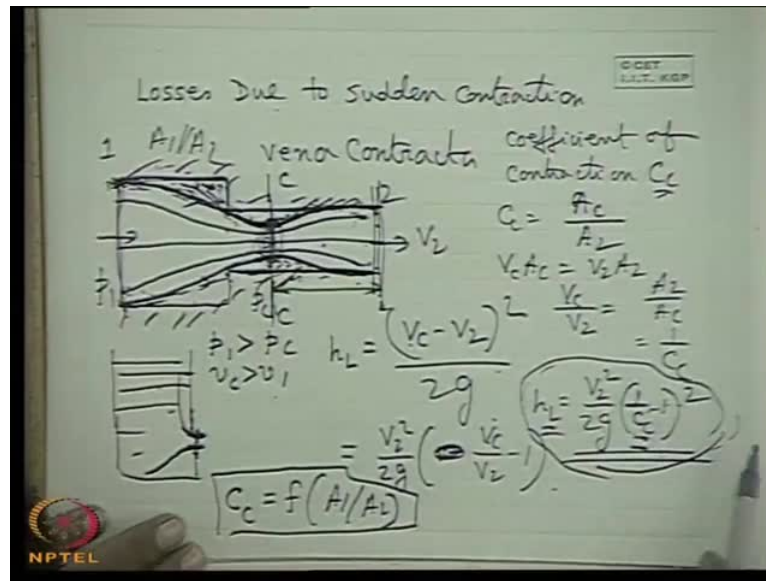 © CET
I.I.T. KGP
Losses Due to Sudden Contraction
1 A1//A2 vena Contracta
coefficient of
contraction Cc
C
2
Cc = Ac / A2
V2
Vc Ac = V2 A2
p1
pc
C
Vc / V2 = A2 / Ac
= 1 / Cc
p1 > pc
vc > v1
hL = (Vc - V2)^2 / 2g
hL = V2^2 / 2g (1/Cc - 1)^2
= V2^2 / 2g (Vc / V2 - 1)
Cc = f(A1//A2)
NPTEL